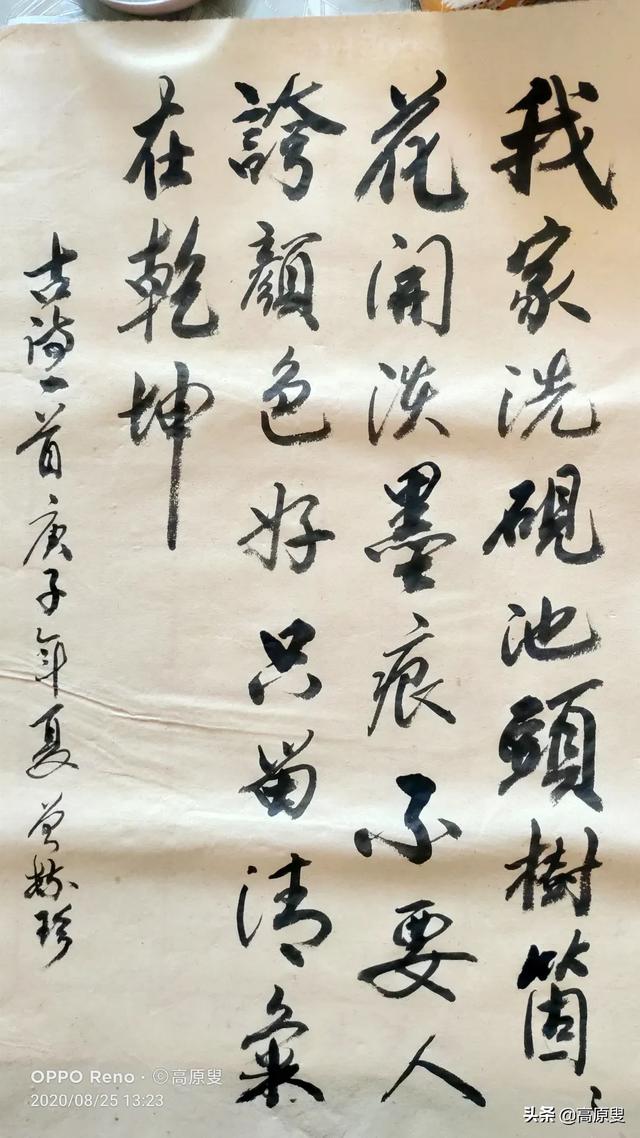 我家洗硯池頭樹箇々
花開淡墨痕不要人
誇顏色好只留清氣
在乾坤
古诗一首庚子年夏
OPPO Reno · ©高原叟
2020/08/25 13:23
头条 @高原叟